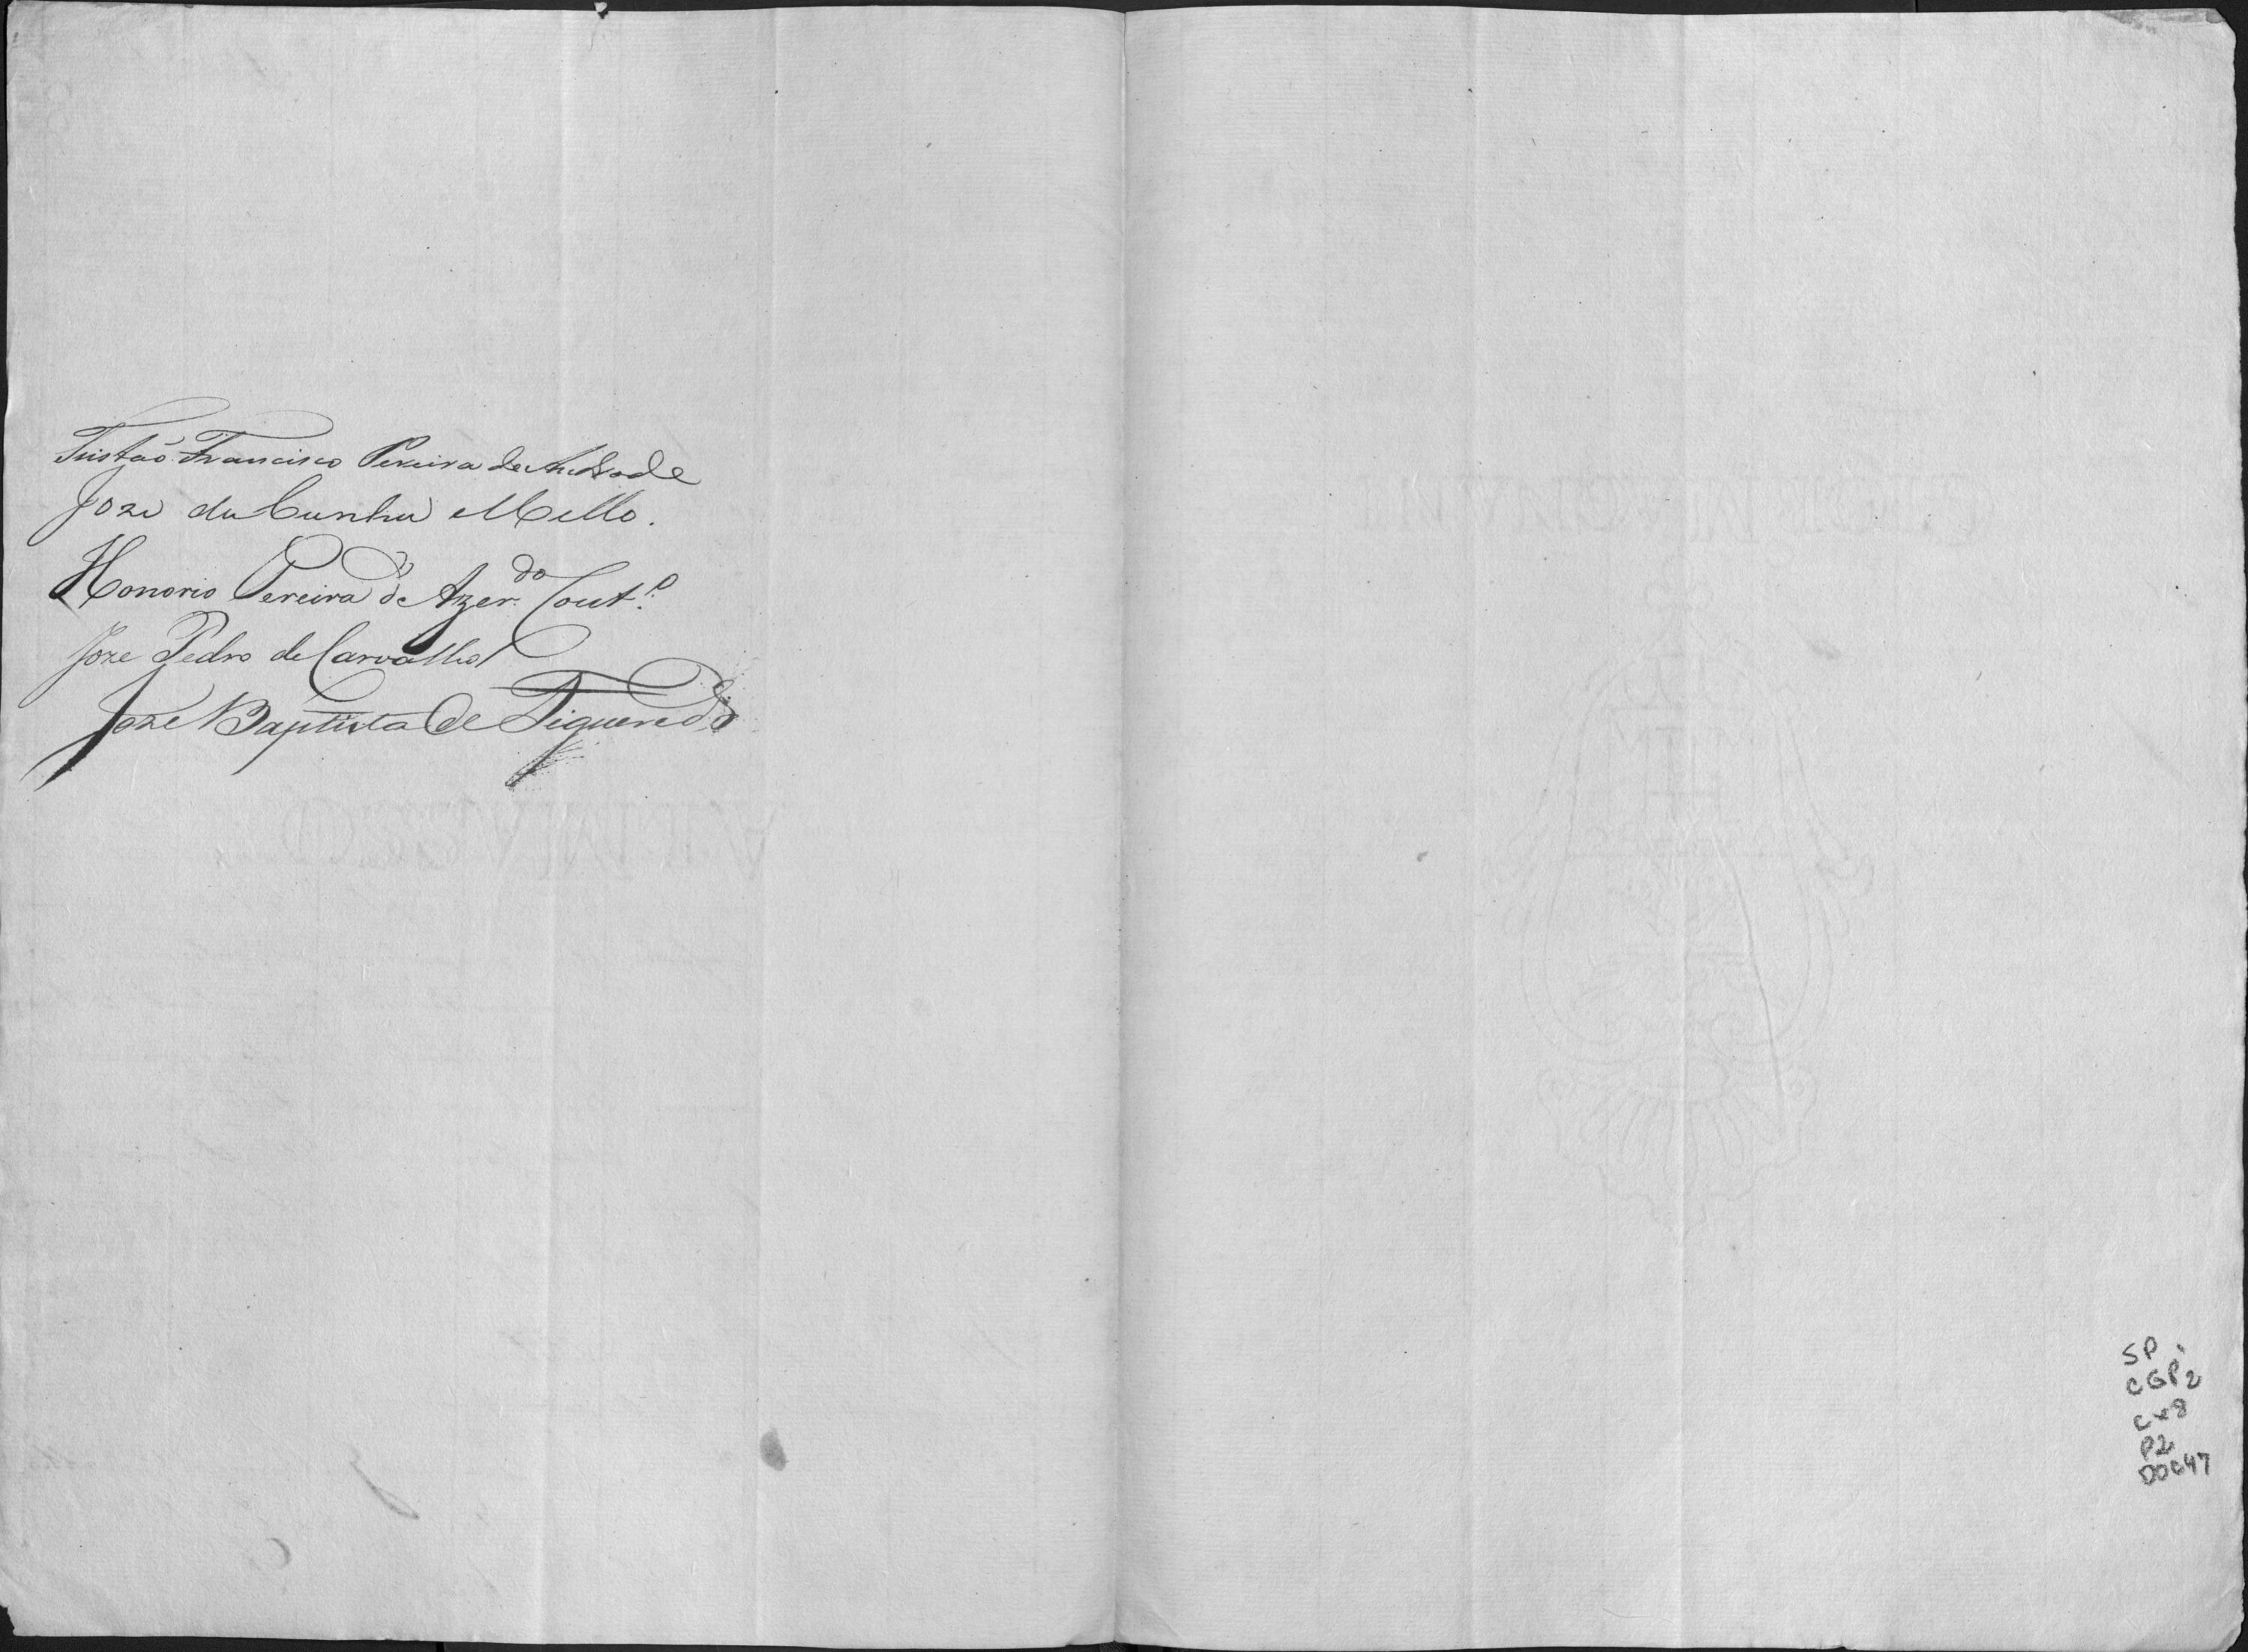 Tristaõ Francisco Pereira de Andrade
Joze da Cunha Mello.
Honorio Pereira de Azer.do Cout.o
Joze Pedro de Carvalho
Joze Baptista de Figueredo
SP
CGP2
Cx8
P2
D0047